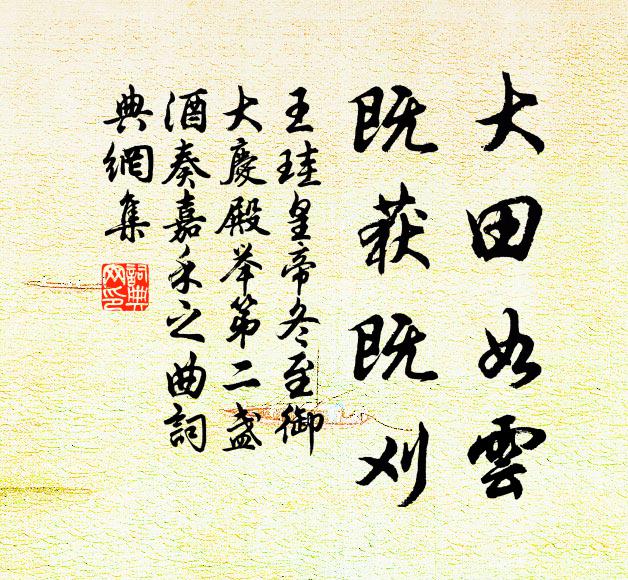 大田如雲
既获既刈
王珪皇帝冬至御
大慶殿举第二盏
酒奏嘉禾之曲詞
典網集
詞典网印